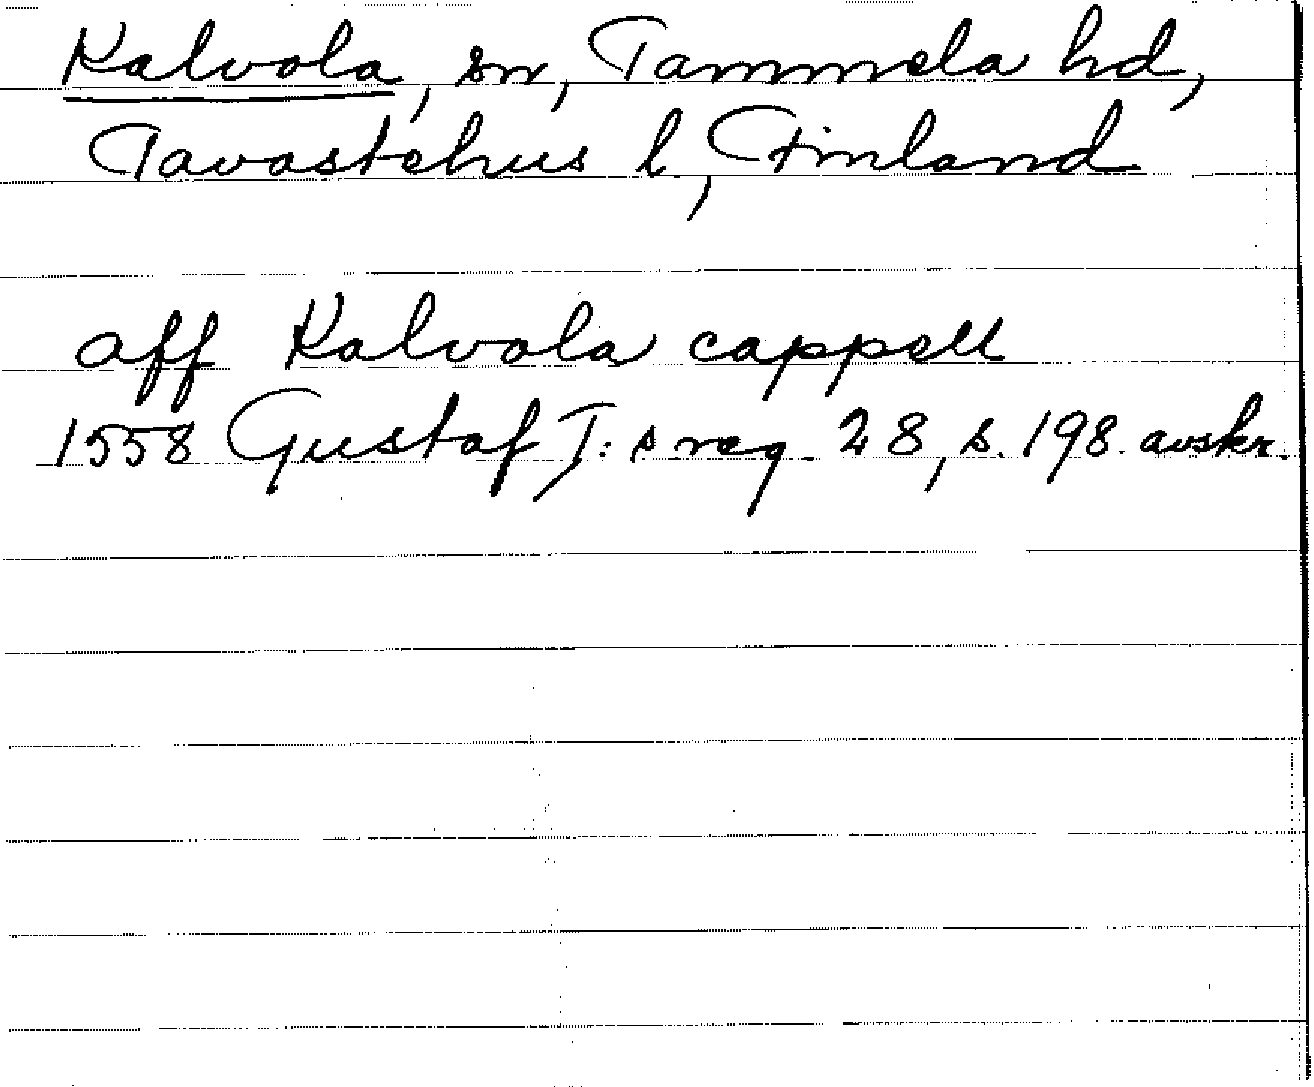 Kalvola, sn, Tammela hd,
Tavastehus l, Finland
aff Kalvola cappell
1558 Gustaf I:s reg. 28, s. 198. avskr.